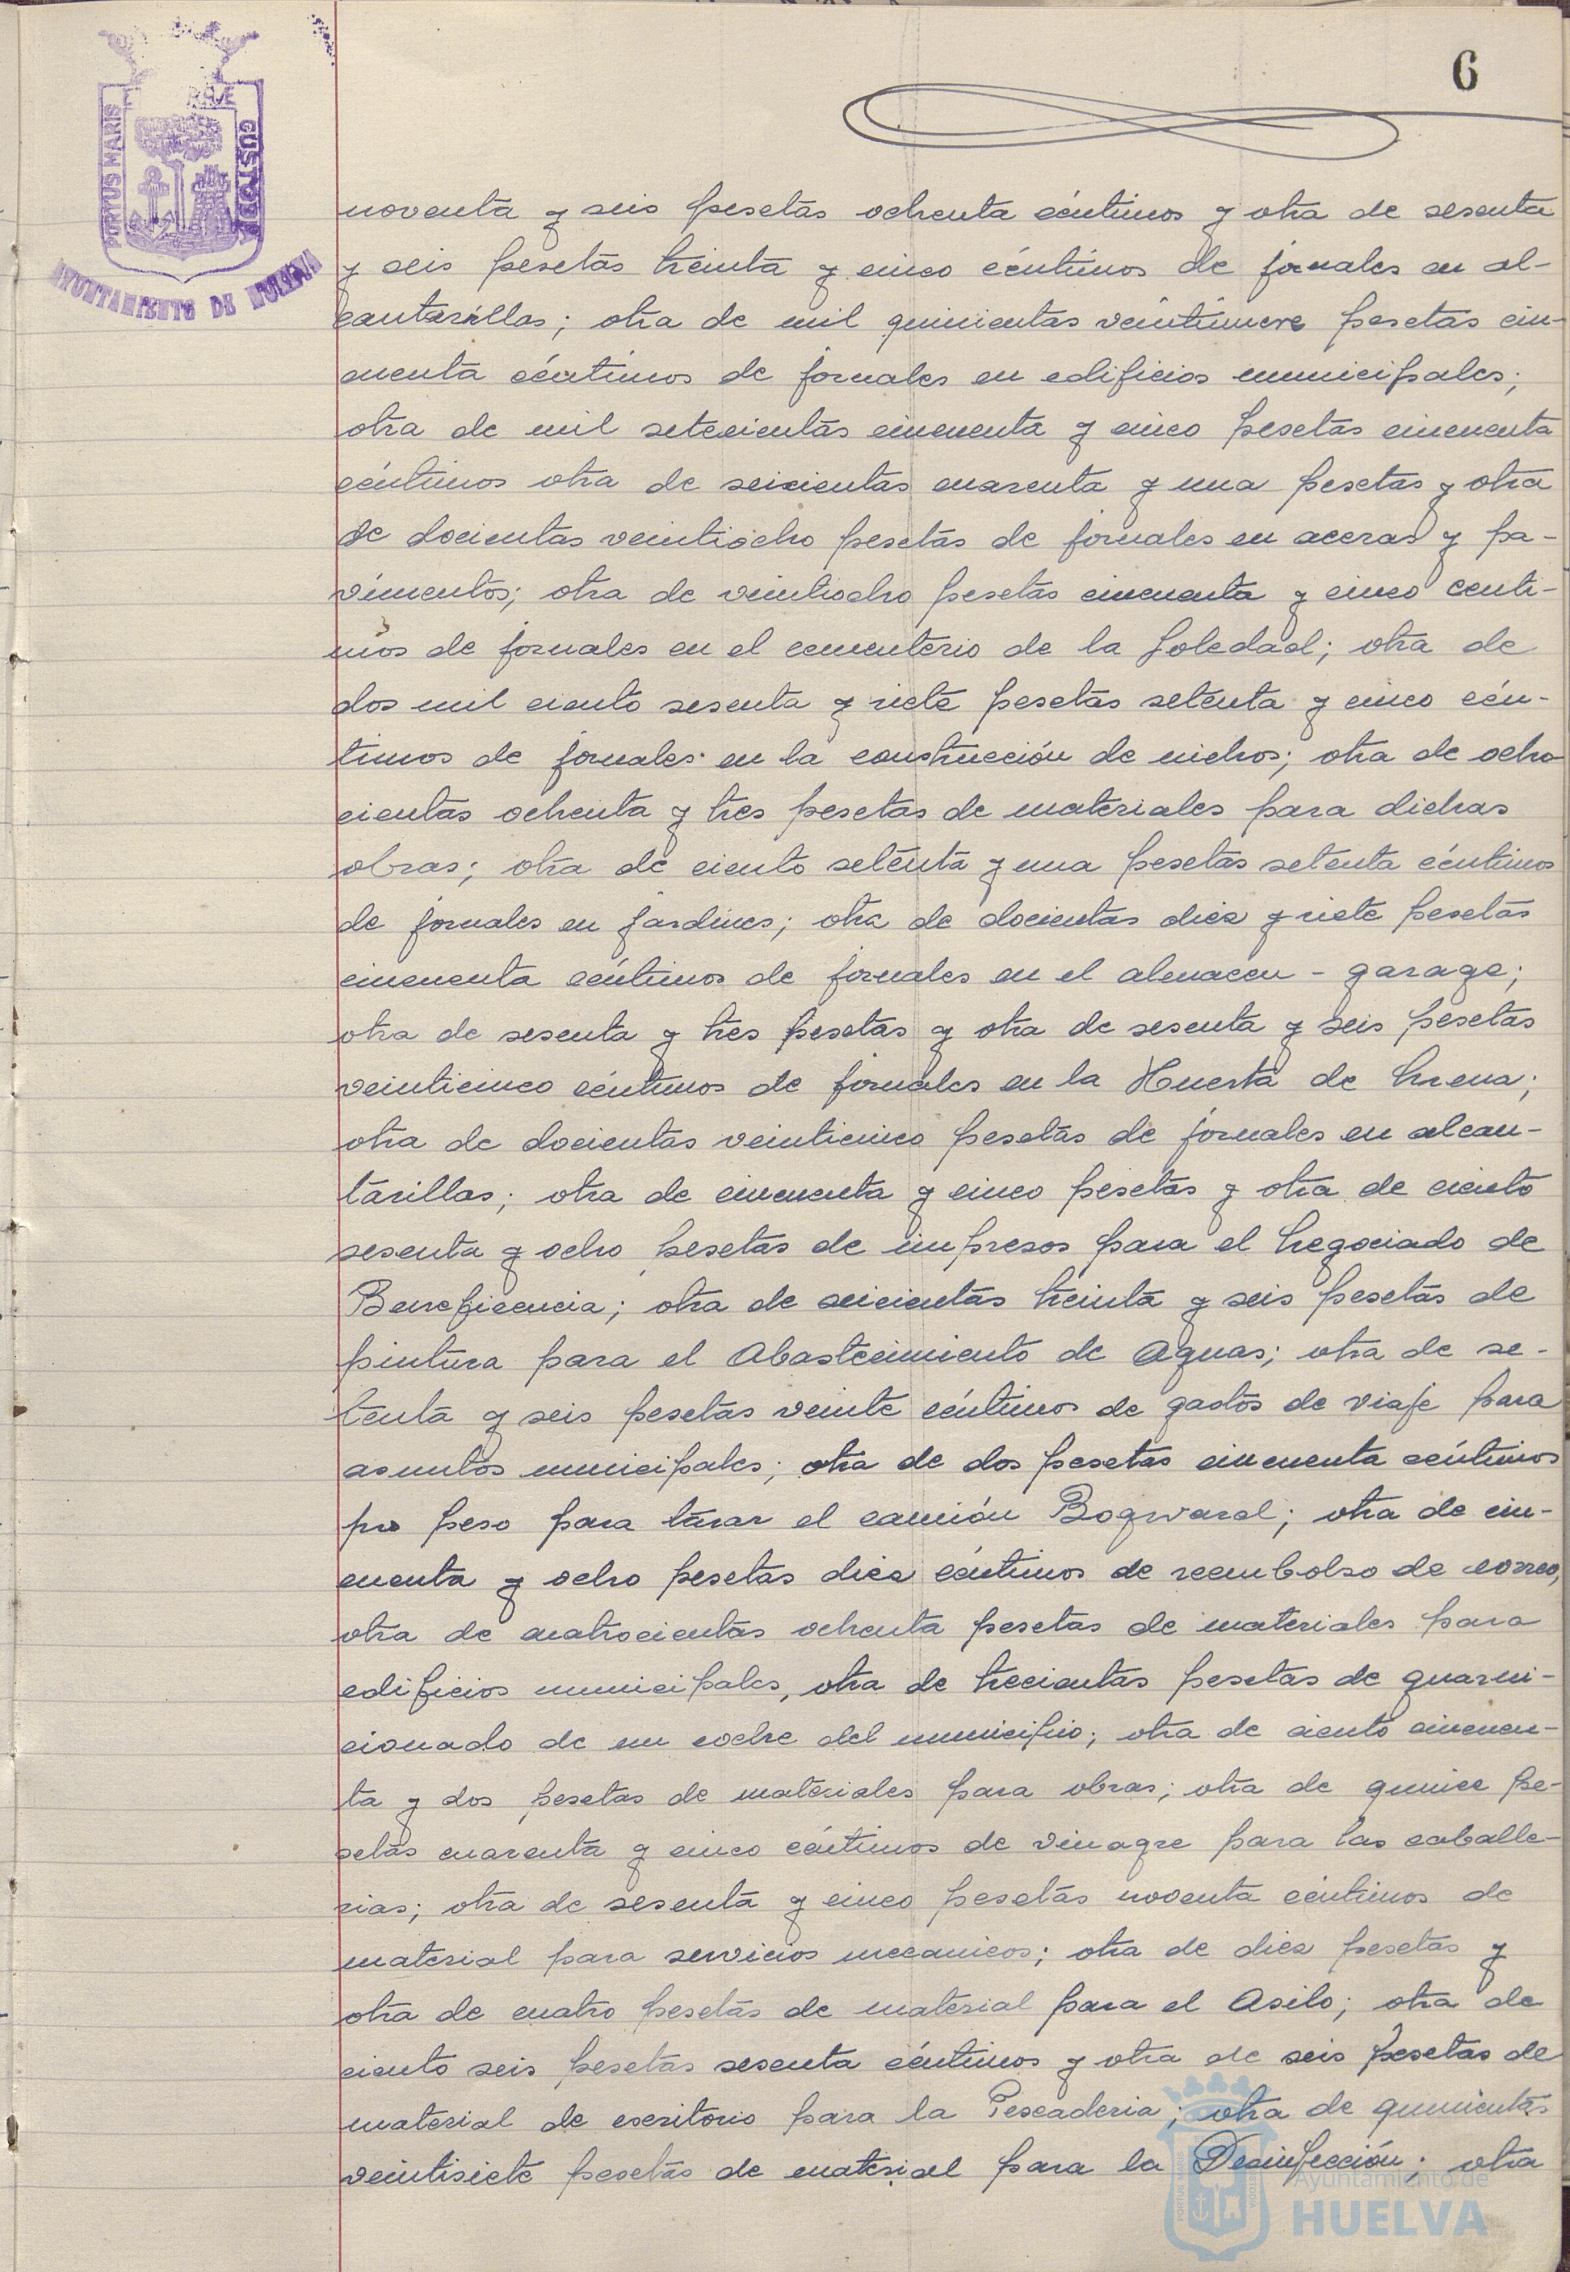 6
PORTUS MARIS
CUSTODIA
AYUNTAMIENTO DE HUELVA
noventa y seis pesetas ochenta céntimos y otra de sesenta
y seis pesetas treinta y cinco céntimos de jornales en al-
cantarillas; otra de mil quinientas veintinueve pesetas cin-
cuenta céntimos de jornales en edificios municipales;
otra de mil setecientas cincuenta y cinco pesetas cincuenta
céntimos otra de seicientas cuarenta y una pesetas y otra
de docientas veintiocho pesetas de jornales en aceras y pa-
vimentos; otra de veintiocho pesetas cincuenta y cinco centi-
mos de jornales en el cementerio de la Soledad; otra de
dos mil ciento sesenta y siete pesetas setenta y cinco cén-
timos de jornales en la construcción de nichos; otra de ocho
cientas ochenta y tres pesetas de materiales para dichas
obras; otra de ciento setenta y una pesetas setenta céntimos
de jornales en jardines; otra de docientas diez y siete pesetas
cincuenta céntimos de jornales en el almacen - garage;
otra de sesenta y tres pesetas y otra de sesenta y seis pesetas
veinticinco céntimos de jornales en la Huerta de Mena;
otra de docientas veinticinco pesetas de jornales en alcan-
tarillas; otra de cincuenta y cinco pesetas y otra de ciento
sesenta y ocho pesetas de impresos para el Negociado de
Beneficencia; otra de seicientas treinta y seis pesetas de
pintura para el Abastecimiento de Aguas; otra de se-
tenta y seis pesetas veinte céntimos de gastos de viaje para
asuntos municipales; otra de dos pesetas cincuenta céntimos
por peso para tarar el camión Bogward; otra de cin-
cuenta y ocho pesetas diez céntimos de reembolso de correo,
otra de cuatrocientas ochenta pesetas de materiales para
edificios municipales, otra de trecientas pesetas de guarni-
cionado de un coche del municipio; otra de ciento cincuen-
ta y dos pesetas de materiales para obras; otra de quince pe-
setas cuarenta y cinco céntimos de vinagre para las caballe-
rias; otra de sesenta y cinco pesetas noventa céntimos de
material para servicios mecanicos; otra de diez pesetas y
otra de cuatro pesetas de material para el Asilo; otra de
ciento seis pesetas sesenta céntimos y otra de seis pesetas de
material de escritorio para la Pescaderia; otra de quinientas
veintisiete pesetas de material para la Desinfección; otra
Ayuntamiento de
HUELVA